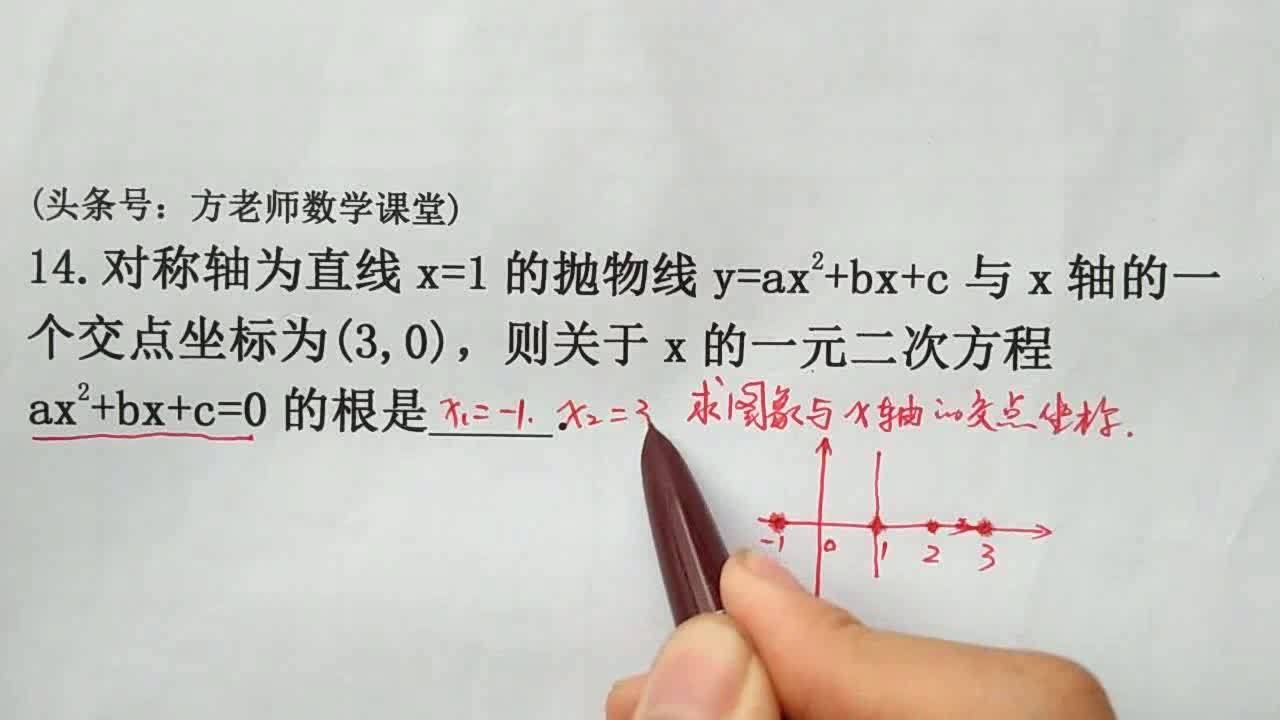 (头条号：方老师数学课堂)
14.对称轴为直线 x=1 的抛物线 y=ax²+bx+c 与 x 轴的一
个交点坐标为(3,0)，则关于 x 的一元二次方程
ax²+bx+c=0 的根是 x₁=-1. x₂=3 求图象与x轴的交点坐标.
-1 0 1 2 3